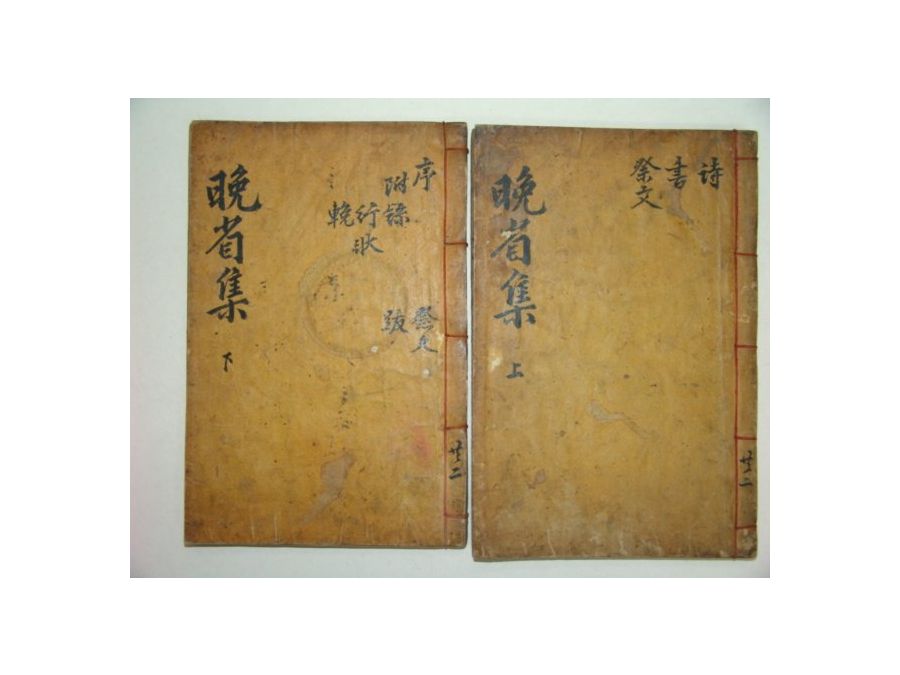 詩
書
祭文
晩省集
上
共二
序
附錄
行狀
輓
祭文
跋
晩省集
下
共二